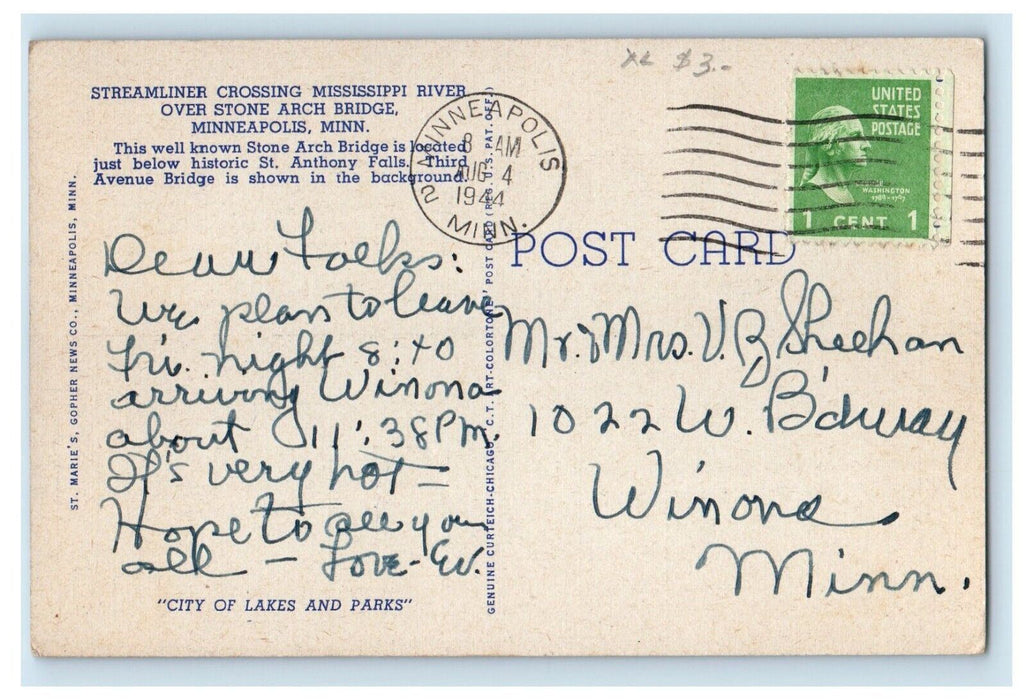 XL $3.-
STREAMLINER CROSSING MISSISSIPPI RIVER
OVER STONE ARCH BRIDGE,
MINNEAPOLIS, MINN.
This well known Stone Arch Bridge is located
just below historic St. Anthony Falls. Third
Avenue Bridge is shown in the background.
MINNEAPOLIS
8 AM
AUG 4
1944
2 MINN.
UNITED
STATES
POSTAGE
WASHINGTON
1789-1797
1 CENT 1
POST CARD
Dear Folks:
We plan to leave
Fri. night 8:40
arriving Winona
about 11:38 PM.
It's very hot –
Hope to see you
all – Love – Ev.
Mr. & Mrs. V. B. Sheehan
1022 W. B'dway
Winona
Minn.
"CITY OF LAKES AND PARKS"
ST. MARIE'S, GOPHER NEWS CO., MINNEAPOLIS, MINN.
GENUINE CURTEICH-CHICAGO C.T. ART-COLORTONE" POST CARD (REG. U.S. PAT. OFF.)